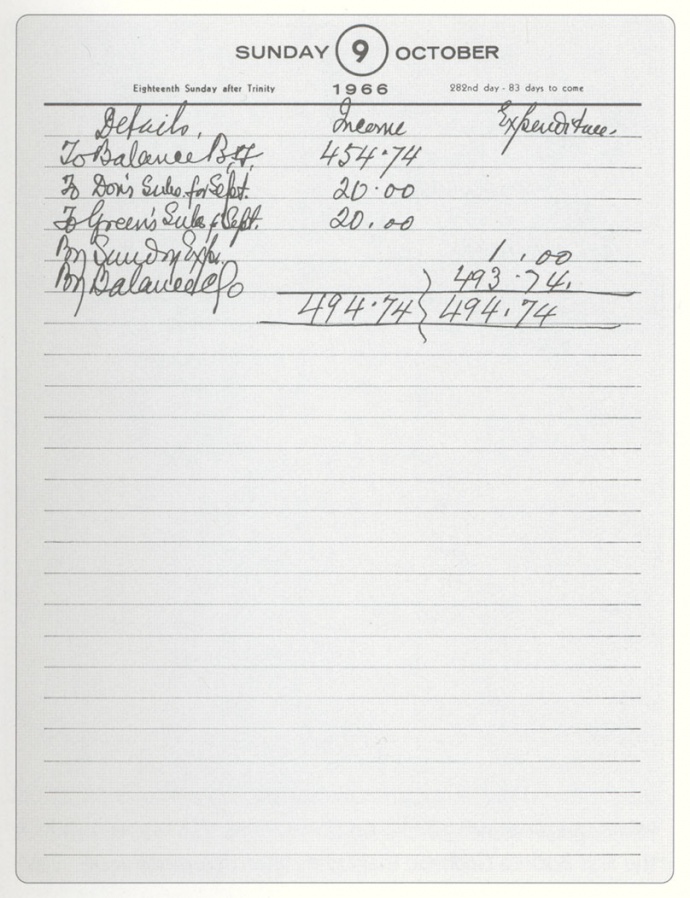 SUNDAY 9 OCTOBER
Eighteenth Sunday after Trinity 1966 282nd day - 83 days to come
Details. Income Expenditure.
To Balance B.F. 454.74
To Don's Subs. for Sept. 20.00
To Green's Subs f Sept. 20.00
By Sundry Exps. 1.00
By Balance C/o 493.74.
494.74 494.74